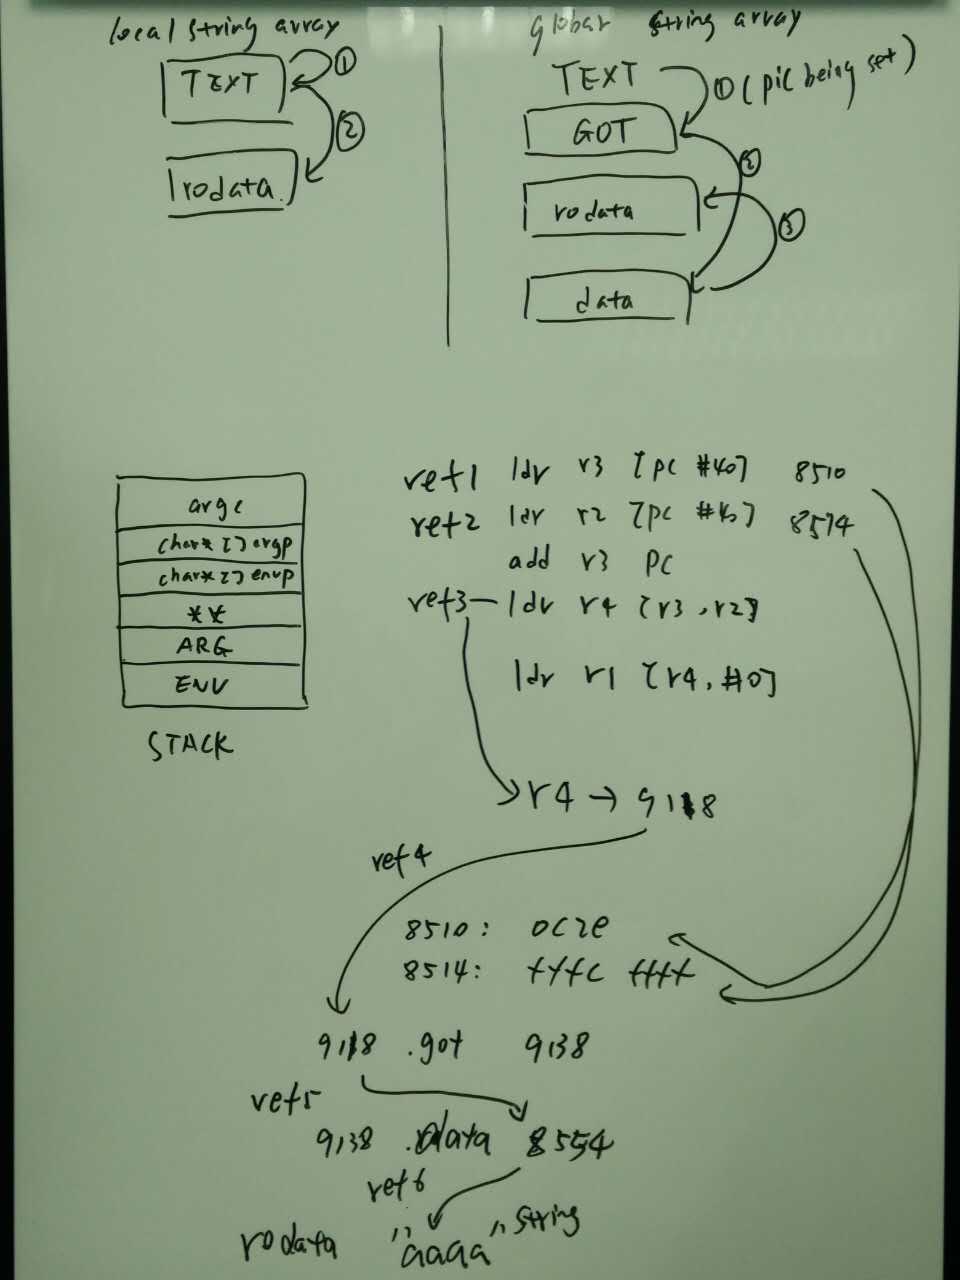 local string array
TEXT ①
②
rodata
global string array
TEXT ① (pic being set)
GOT
②
rodata
③
data
argc
char* [] argp
char* [] envp
**
ARG
ENV
STACK
ref1 ldr r3 [pc #40] 8510
ref2 ldr r2 [pc #40] 8514
add r3 pc
ref3 ldr r4 [r3, r2]
ldr r1 [r4, #0]
r4 → 9118
ref4
8510: 0c2e
8514: fffc ffff
9118 .got 9138
ref5
9138 .data 8554
ref6
rodata "aaaa" string